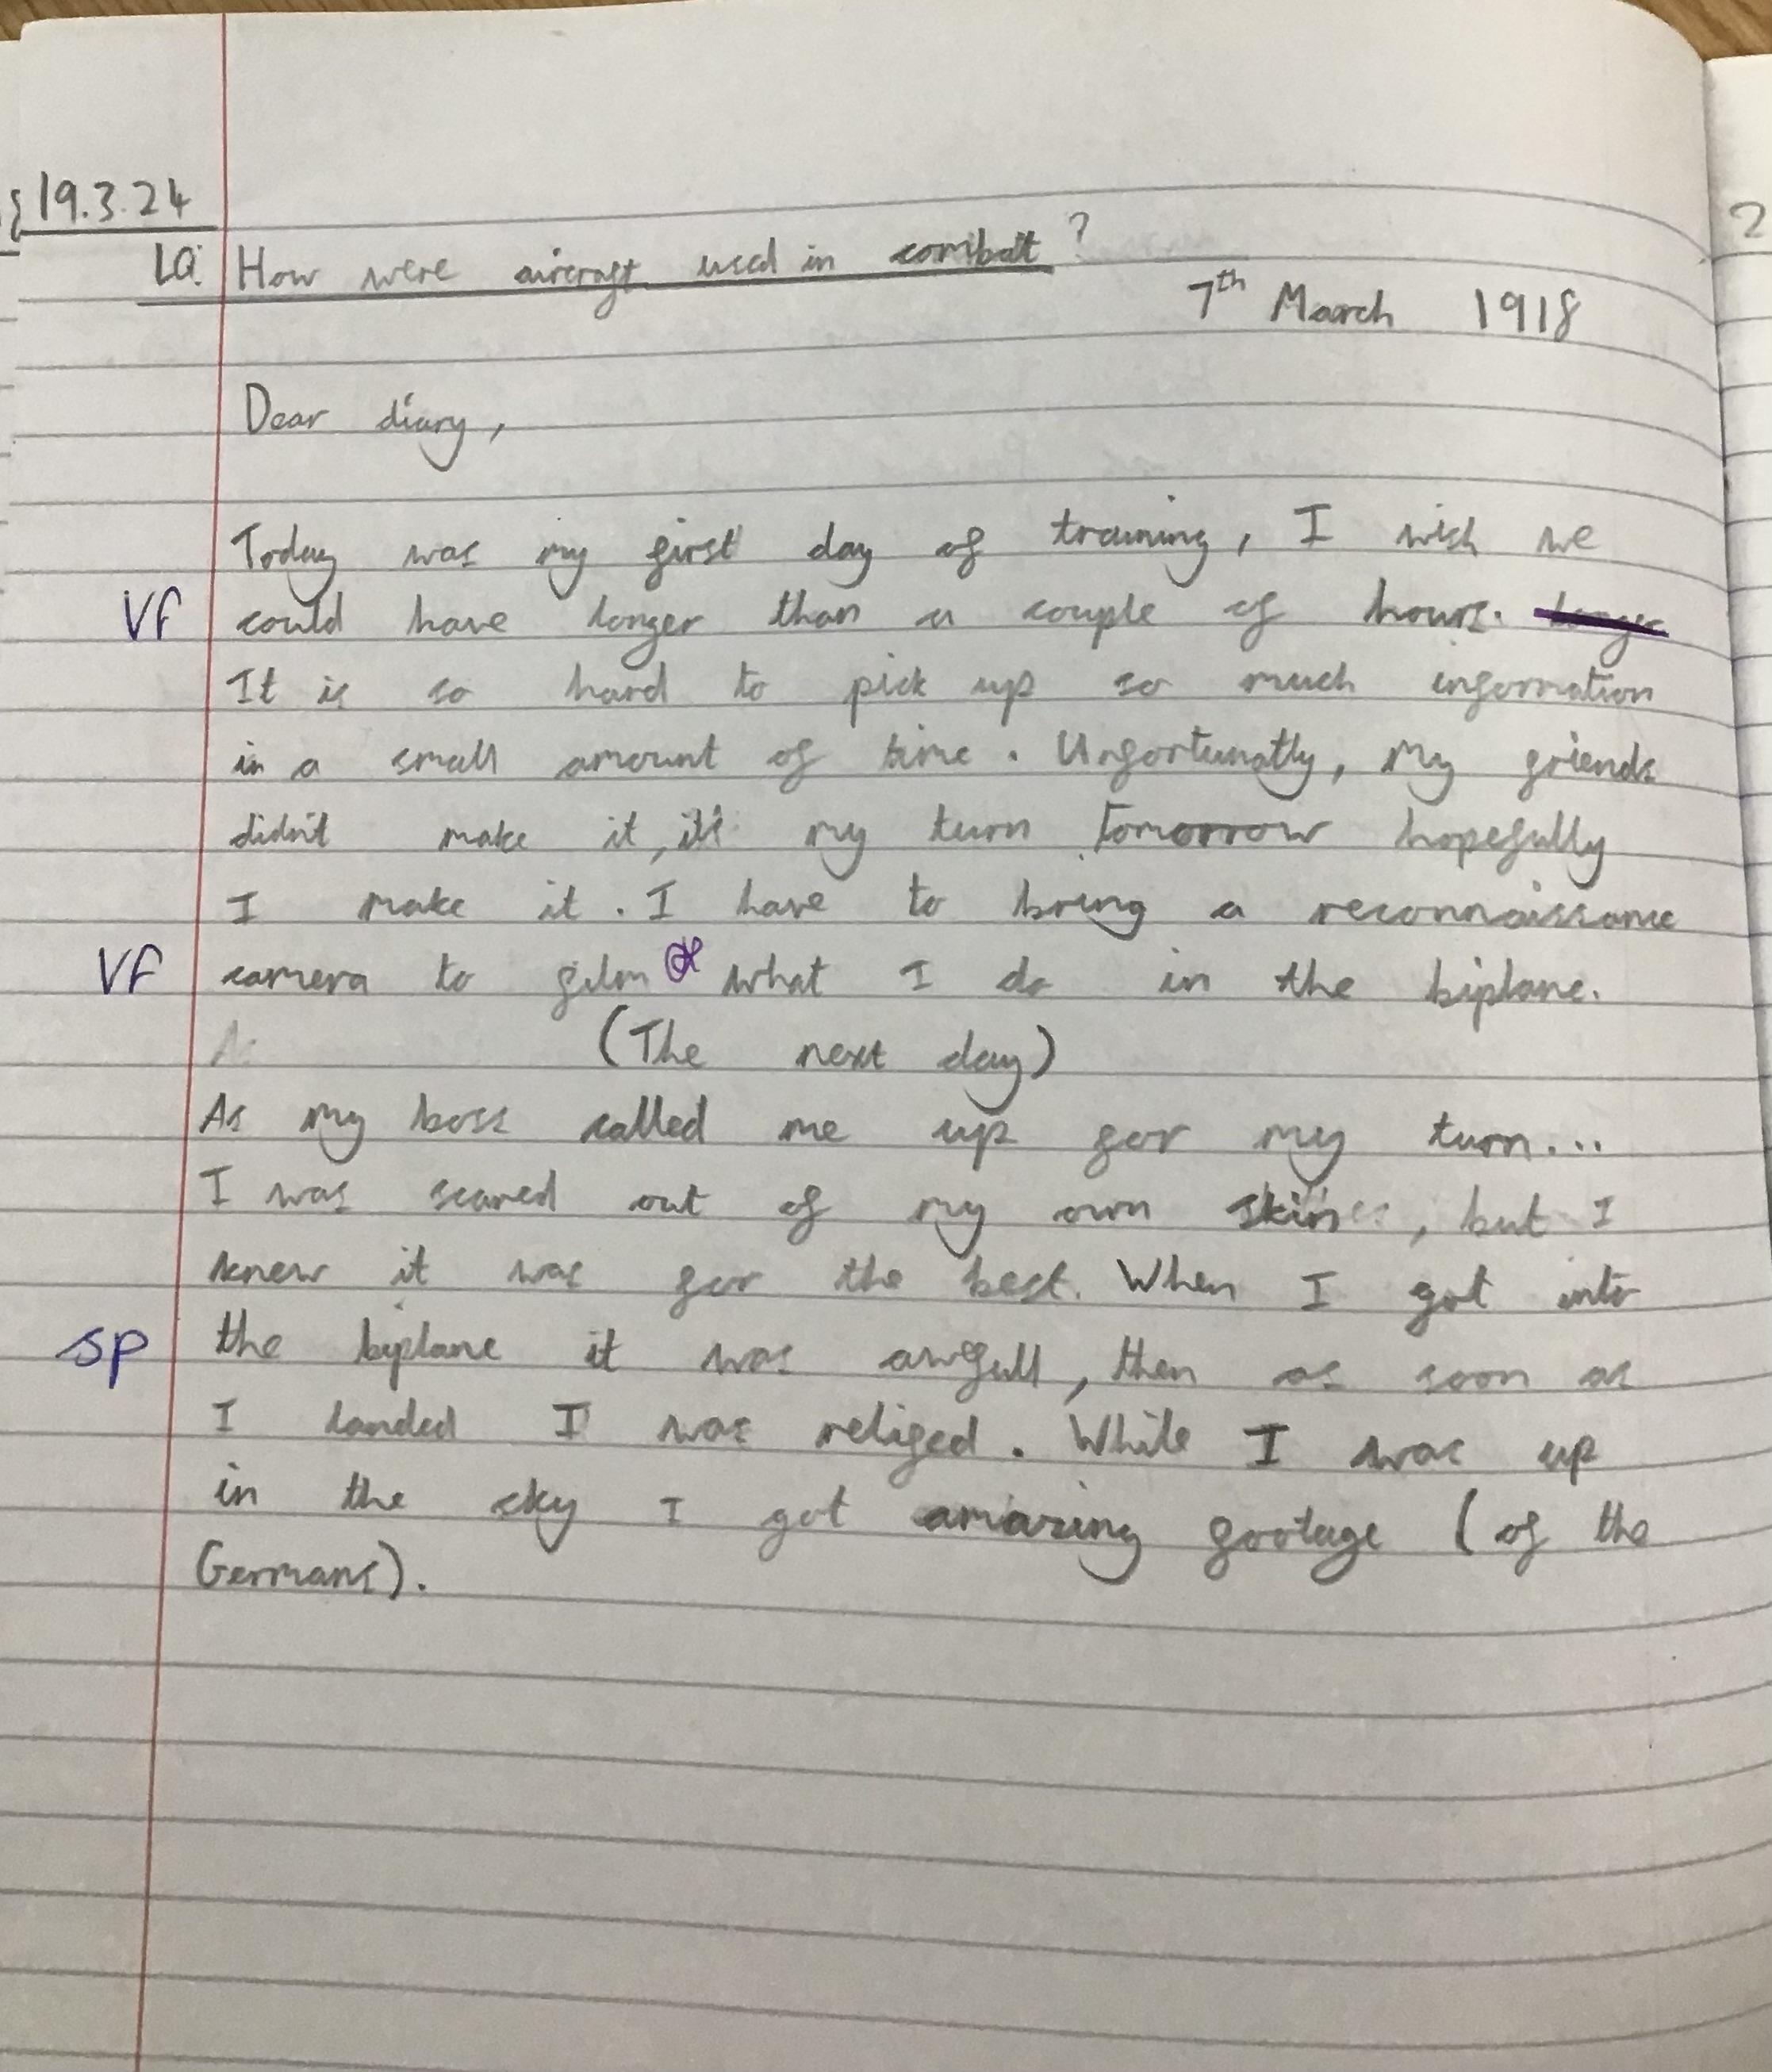 19.3.24
LQ: How were aircraft used in combatt?
7th March 1918
Dear diary,
Today was my first day of training, I wish we
VF could have longer than a couple of hours. longer
It is so hard to pick up so much information
in a small amount of time. Unfortunatly, My friends
didn't make it, it's my turn tomorrow hopefully
I make it. I have to bring a reconnaissance
VF camera to film what I do in the biplane.
(The next day)
As my boss called me up for my turn...
I was scared out of my own skin, but I
knew it was for the best. When I got into
sp the biplane it was awfull, then as soon as
I landed I was relifed. While I was up
in the sky I got amazing footage (of the
Germans).
2